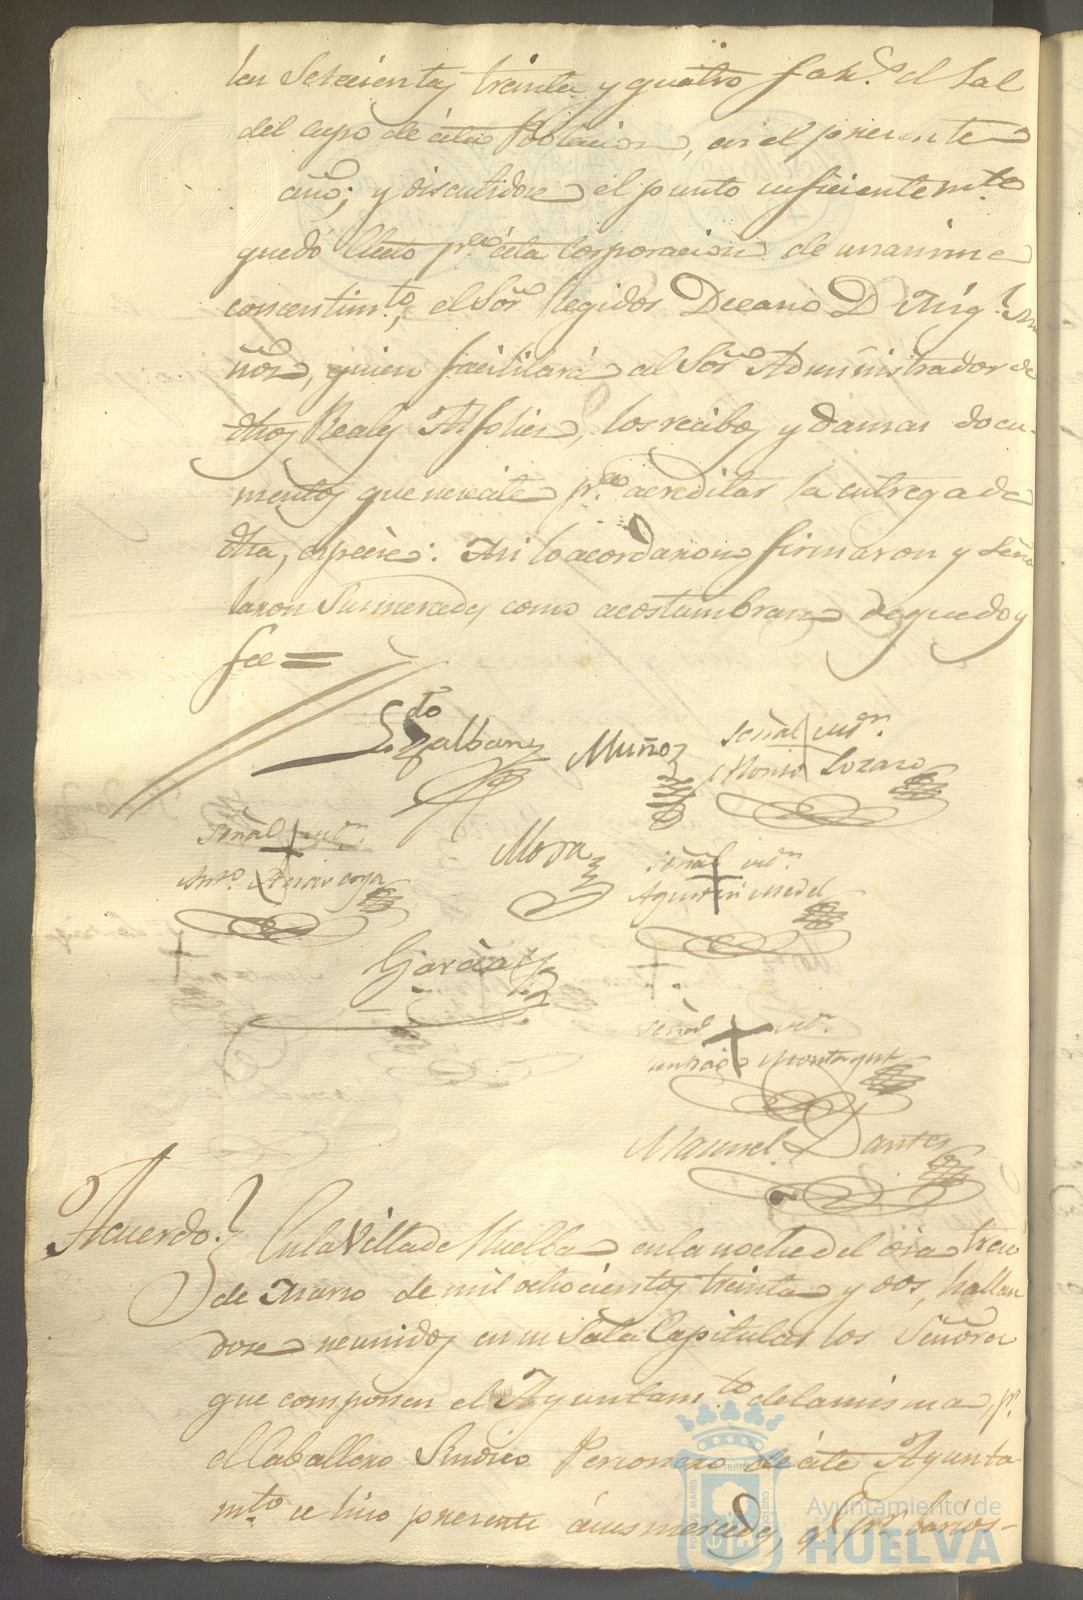 las Setecientas treinta y quatro fan.s de Sal
del cupo de ésta Poblacion, en el presente
año; y discutidose el punto suficientem.te
quedó electo p.r ésta Corporacion de unanime
consentim.to, el Sor. Regidor Decano D. Mig.l Mu
ñoz, quien facilitará al Sor. Administrador de
dhos Reales Alfolies, los recibos y damas docu-
mentos que necesite p.a acreditar la entrega de
dha, especie: Asi lo acordaron firmaron y seña
laron Sus mercedes como acostumbran de que doy
fee =
L.do Galban Muñoz Señal + un Rn.
Alonso Lozano
Señal + un Rn. Mora Señal + un Rn.
Anto. Agustin Medel
Garcia
Señal + un Rn.
Montagut
Manuel Dantes
Acuerdo. En la Villa de Huelba en la noche del dia trece
de Marzo de mil ochocientos treinta y dos, hallan
dose reunidos en su Sala Capitular los Señores
que componen el Ayuntam.to de la misma, p.r
el Caballero Sindico Personero de éste Ayunta-
m.to se hizo presente á sus mercedes, q.e p.r varios-
Ayuntamiento de
HUELVA